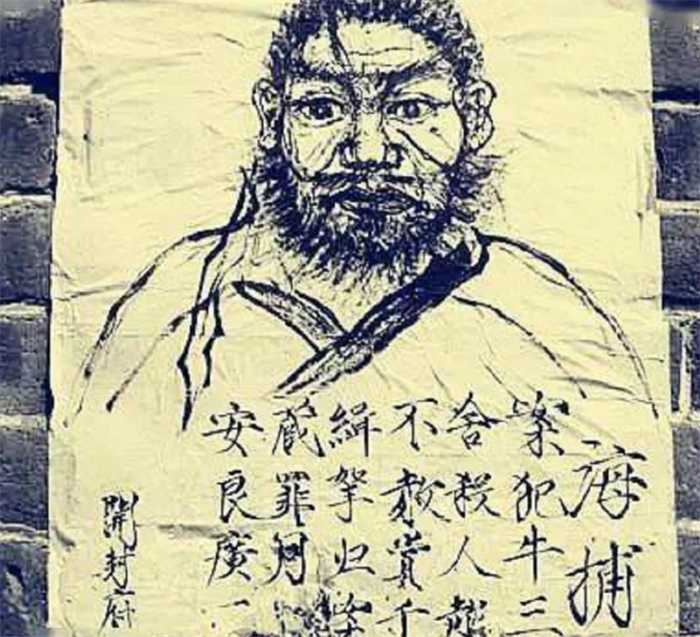 海捕
案犯牛三
舍殺人越
不赦賞千
緝拏归案
藏罪同
安良廣
開封府